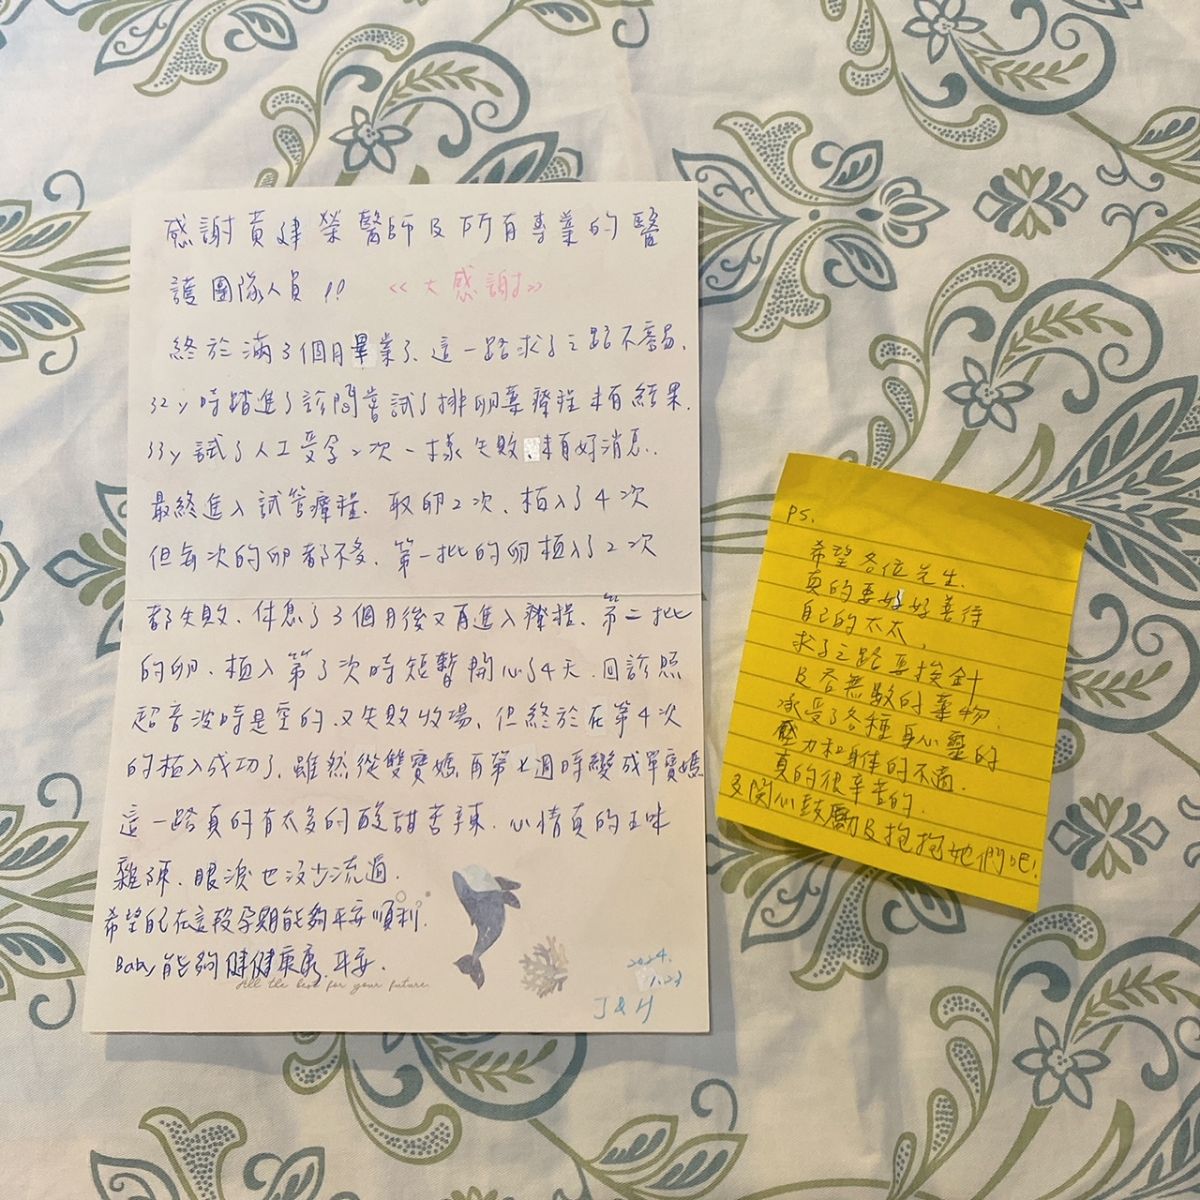 感謝黃建榮醫師及所有專業的醫
護團隊人員!! <<大感謝>>
終於滿3個月畢業了、這一路求子之路不容易、
32y時踏進了診間嘗試了排卵藥療程未有結果、
33y試了人工受孕2次一樣失敗 未有好消息..
最終進入試管療程、取卵2次、植入了4次
但每次的卵都不多、第一批的卵植入了2次
都失敗、休息了3個月後又再進入療程、第二批
的卵、植入第3次時短暫開心了4天、回診照
超音波時是空的、又失敗收場、但終於在第4次
的植入成功了、雖然從雙寶媽再第七週時變成單寶媽
這一路真的有太多的酸甜苦辣、心情真的五味
雜陳、眼淚也沒少流過、
希望自己在這段孕期能夠平安順利、
Baby能夠健健康康、平安、
All the best for your future.
2024.
1.23
J & H
PS.
希望各位先生、
真的要好好善待
自己的太太、
求子之路要挨針
及吞無數的藥物、
承受了各種身心靈的
壓力和身體的不適、
真的很辛苦的、
多關心鼓勵及抱抱她們吧!